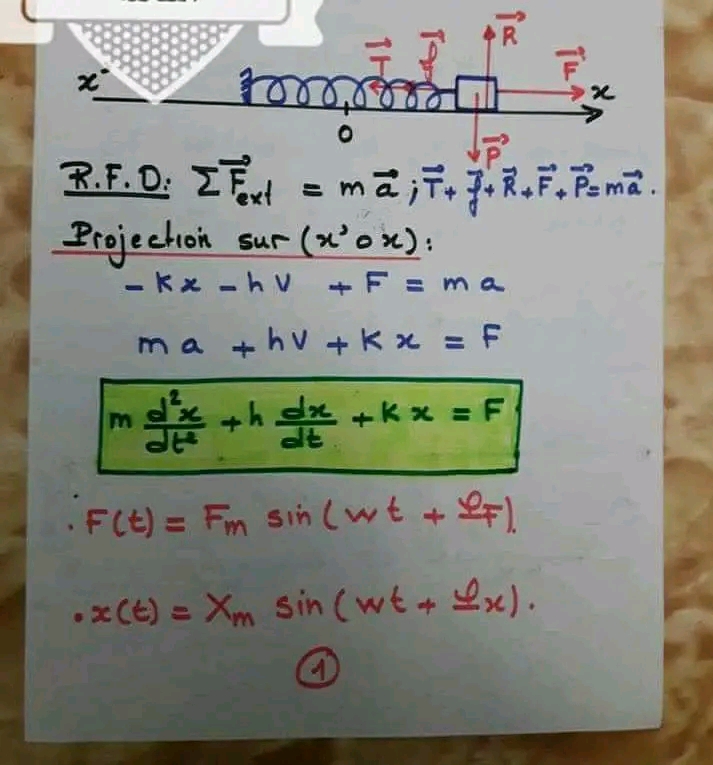 x' T⃗ f⃗ R⃗ F⃗ x
O P⃗
R.F.D: ΣF⃗ext = m a⃗ ; T⃗ + f⃗ + R⃗ + F⃗ + P⃗ = m a⃗.
Projection sur (x' o x) :
- Kx - hV + F = m a
m a + hV + K x = F
m d²x/dt² + h dx/dt + K x = F
. F(t) = Fm sin(wt + φF).
. x(t) = Xm sin(wt + φx).
1